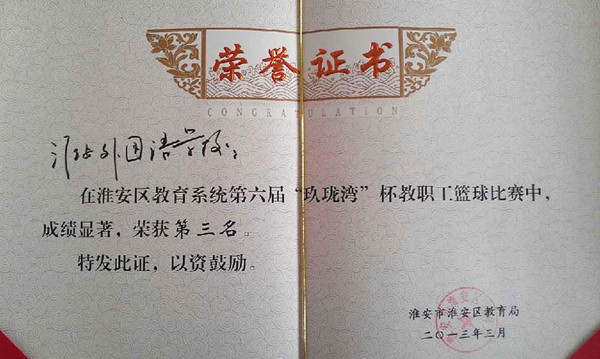 荣誉证书
CONGRATULATION
淮安外国语学校：
在淮安区教育系统第六届“玖珑湾”杯教职工篮球比赛中，
成绩显著，荣获第三名。
特发此证，以资鼓励。
淮安市淮安区教育局
二〇一三年三月